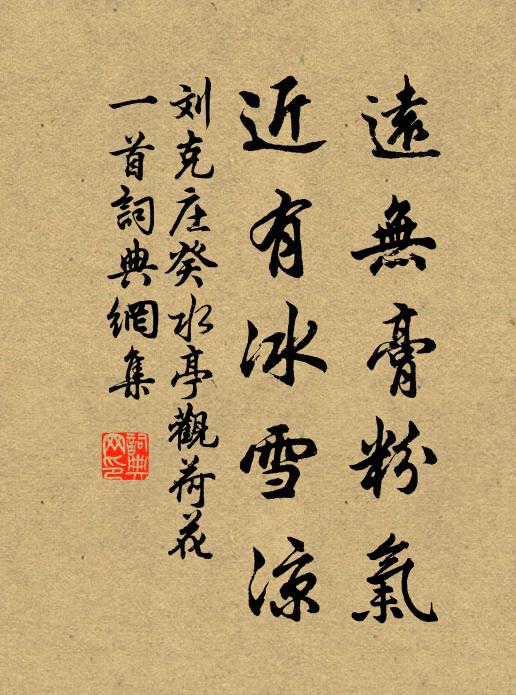 遠無膏粉氣
近有冰雪涼
刘克庄癸水亭觀荷花
一首詞典網集
詞典網印